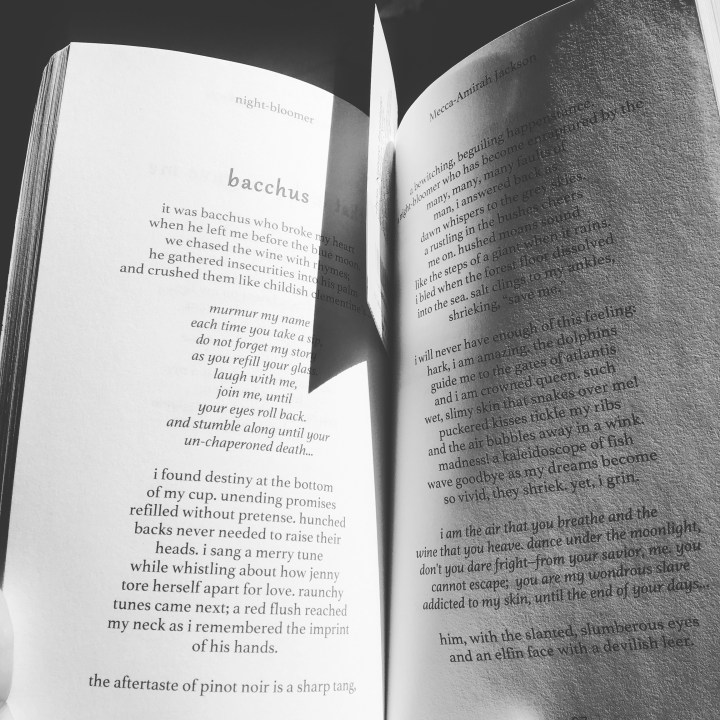 night-bloomer
bacchus
it was bacchus who broke my heart
when he left me before the blue moon.
we chased the wine with rhymes;
he gathered insecurities into his palm
and crushed them like childish clementines.
murmur my name
each time you take a sip,
do not forget my story
as you refill your glass
laugh with me,
join me, until
your eyes roll back.
and stumble along until your
un-chaperoned death...
i found destiny at the bottom
of my cup. unending promises
refilled without pretense. hunched
backs never needed to raise their
heads. i sang a merry tune
while whistling about how jenny
tore herself apart for love. raunchy
tunes came next; a red flush reached
my neck as i remembered the imprint
of his hands.
the aftertaste of pinot noir is a sharp tang,
Mecca-Amirah Jackson
a bewitching, beguiling happenstance.
night-bloomer who has become enraptured by the
many, many, many faults of
man, i answered back in
dawn whispers to the grey skies.
a rustling in the bushes cheers
me on. hushed moans sound
like the steps of a giant when it rains.
i bled when the forest floor dissolved
into the sea. salt clings to my ankles,
shrieking, "save me."
i will never have enough of this feeling:
hark, i am amazing. the dolphins
guide me to the gates of atlantis
and i am crowned queen. such
wet, slimy skin that snakes over me!
puckered kisses tickle my ribs
and the air bubbles away in a wink.
madness! a kaleidoscope of fish
wave goodbye as my dreams become
so vivid, they shriek. yet, i grin.
i am the air that you breathe and the
wine that you heave. dance under the moonlight,
don't you dare fright—from your savior, me. you
cannot escape; you are my wondrous slave
addicted to my skin, until the end of your days...
him, with the slanted, slumberous eyes
and an elfin face with a devilish leer.